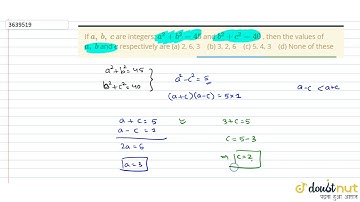 3639519
If a, b, c are integers; a² + b² = 45 and b² + c² = 40, then the values of
a, b and c respectively are (a) 2, 6, 3 (b) 3, 2, 6 (c) 5, 4, 3 (d) None of these
a² + b² = 45
b² + c² = 40
a² - c² = 5
a - c < a + c
(a + c) (a - c) = 5 × 1
a + c = 5
a - c = 1
2a = 6
a = 3
3 + c = 5
c = 5 - 3
c = 2
doubtnut
पढ़ना हुआ आसान